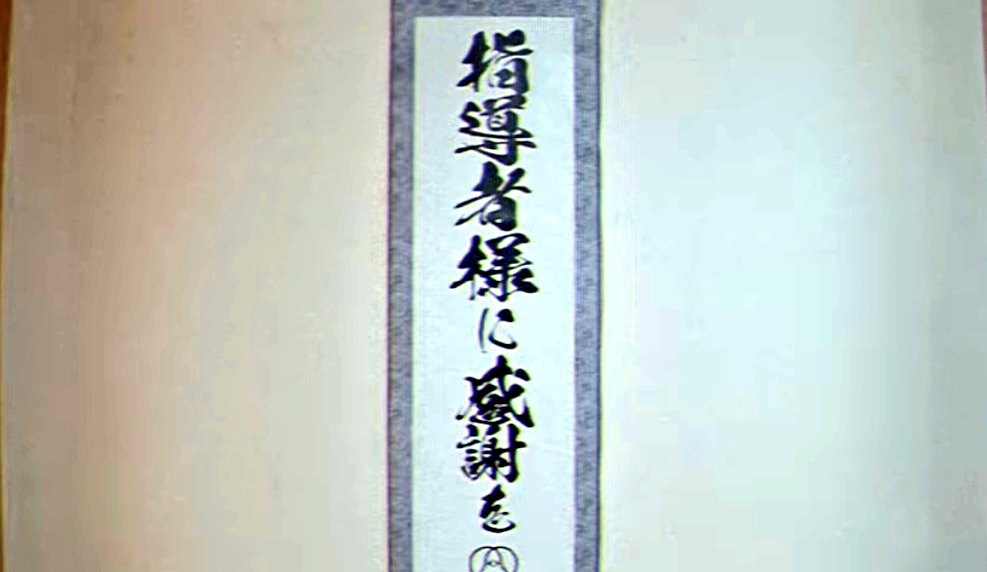 指導者様に感謝を